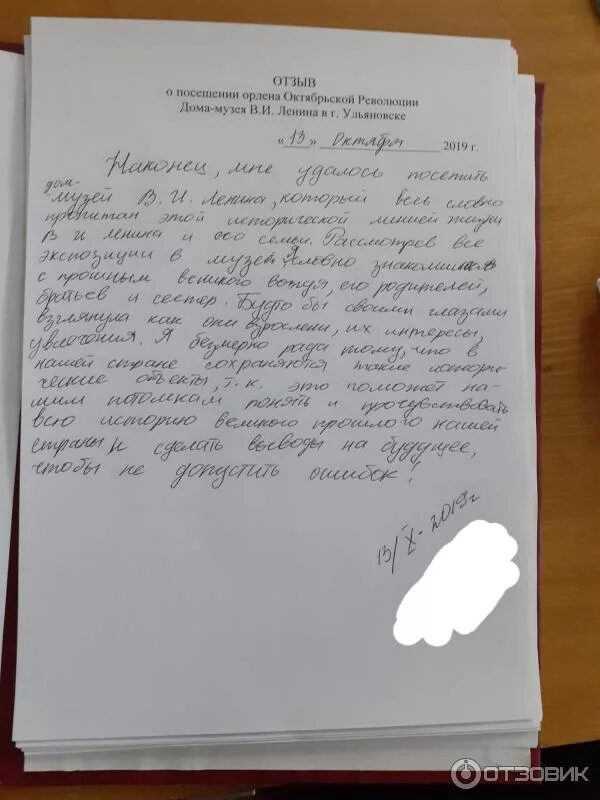 ОТЗЫВ
о посещении ордена Октябрьской Революции
Дома-музея В.И. Ленина в г. Ульяновске
« 13 » октября 2019 г.
Наконец, мне удалось посетить
дом-
музей В. И. Ленина, который весь словно
пропитан этой исторической линией жизни
В И Ленина и его семьи. Рассмотрев все
экспозиции в музее, я словно
с прошлым великого вождя, его родителей,
братьев и сестер. Будто бы своими глазами
взглянула как они взрослели, их интересы,
увлечения. Я безмерно рада тому, что в
нашей стране сохраняются такие истори-
ческие объекты, т. к. это поможет на-
шим потомкам понять и прочувствовать
всю историю великого прошлого нашей
страны и сделать выводы на будущее,
чтобы не допустить ошибок!
13/X- 2019г
ОТЗОВИК